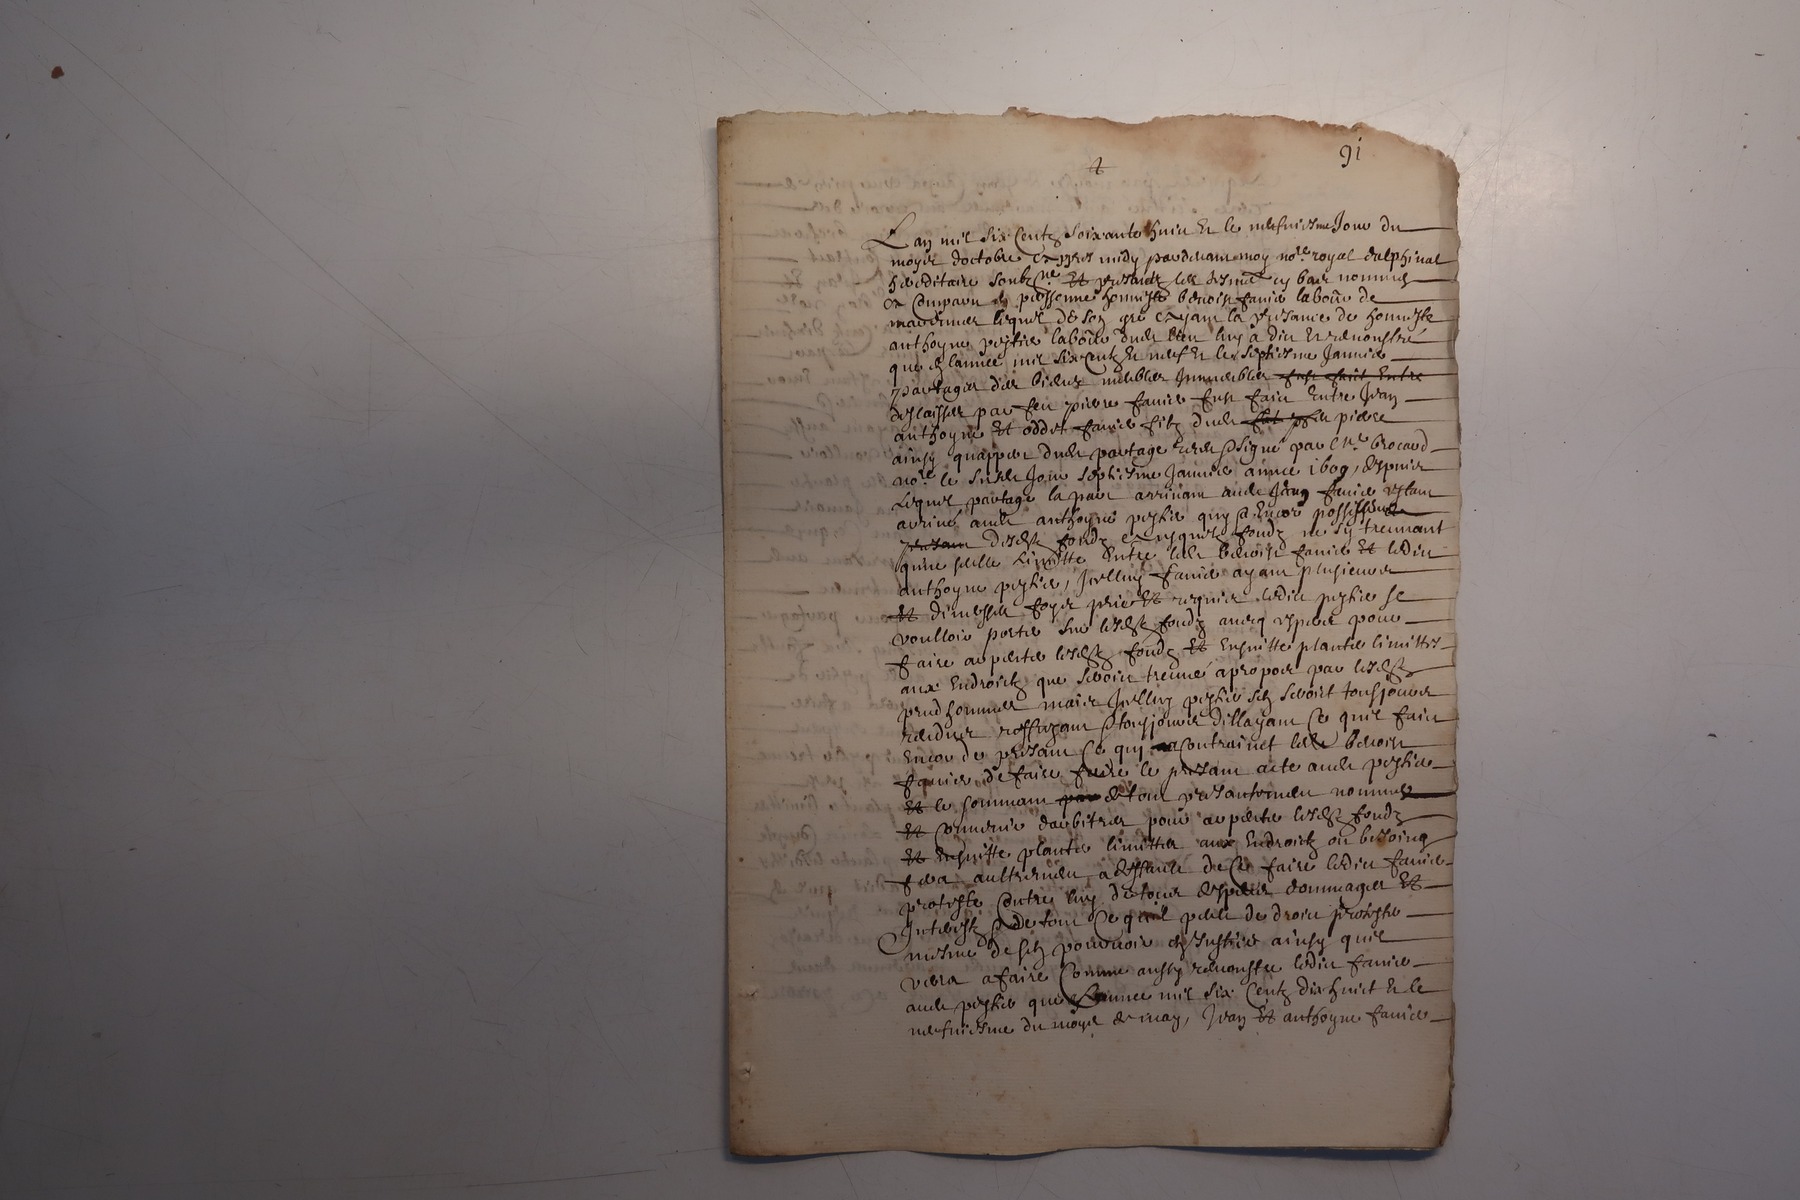 91
Lan mil six centz soixante huict et le nefviesme Jour du
moys doctobre appres midy pardevant moy no.re royal dalphinal
hereditaire soubz.ne et presantz les tesmoingz bas nommes
comparu personne honneste benoist favier laboureur de
lequel de son gre ayant la presance de honneste
anthoyne laboureur dudit lieu luy a dict et remonstré
que lannée mil six centz et neuf et le septiesme Janvier
partages des biens meubles Immeubles fust faict Entre
deslaisses par feu pierre favier fust faict Entre Jean
anthoyne et oddet favier filz dudit pierre
ainsy quappert dudit partage receu signé par Me brocard
no.re le susdit Jour septiesme Janvier année 1609, despuis
lequel partage la part arrivant audit Jean favier estant
arrivé audit anthoyne quy encor possesseur
presant desdits fondz lesquels fondz ne sy treuvant
qune seulle limitte Entre ledit benoist favier et ledict
anthoyne Icelluy favier ayant plusieurs
et diverses foys prié et requis ledict se
voulloir porter sur lesdits fondz avecq expertz pour
faire apperter lesdits fondz et Ensuitte planter limittes
aux Endroictz que seroict treuvé apropos par lesdits
preudhommes mais Icelluy seroict tousjours
randeu reffuzant tousjours dillayant ce quil faict
Encor de presant ce quy contrainct ledit benoist
favier de faire faire le presant acte audit
et le sommant par de tout presantement nommer
et convenir darbitres pour apperter lesdits fondz
et Ensuitte planter limittes aux Endroictz ou besoing
sera aultrement a deffault de ce faire ledict favier
proteste contre luy de tous despens dommages et
Interestz de tout ce quil peult de droict protester
mesme de se pourvoir en Justice ainsy quil
verra a faire Comme aussy remonstre ledict favier
audit que Lannee mil six centz dix huict et le
nefviesme du moys de may, Jean et anthoyne favier